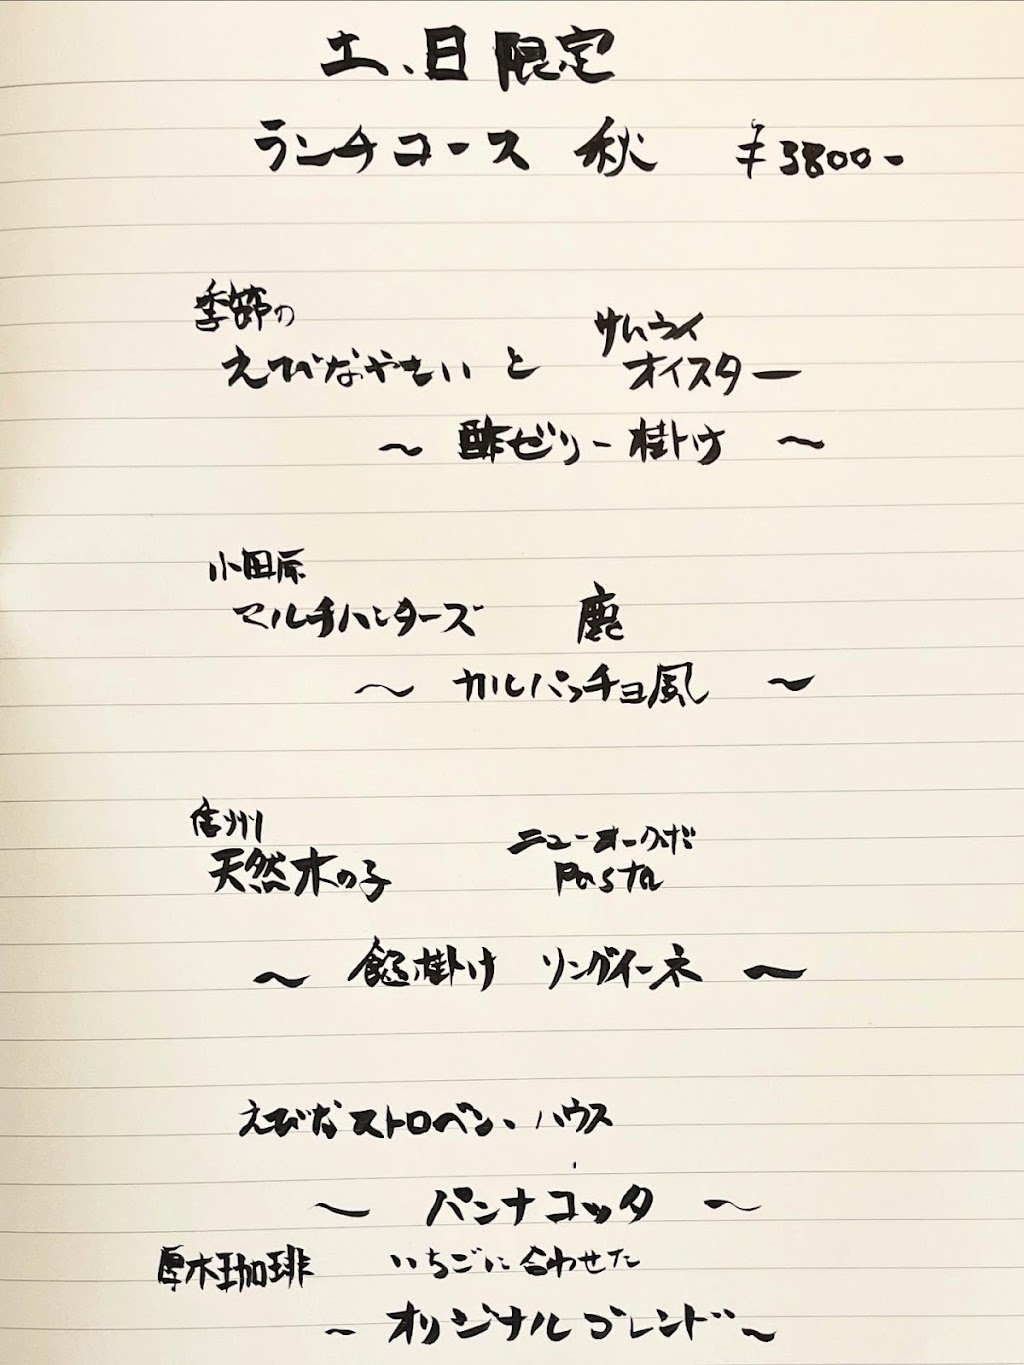 土、日限定
ランチコース 秋 ¥3800-
季節の
えびなやさい と サムライ
オイスター
〜 酢ゼリー掛け 〜
小田原
マルチハンターズ 鹿
〜 カルパッチョ風 〜
信州
天然木の子 ニューオークボ
Pasta
〜 餡掛け リングイーネ 〜
えびなストロベリーハウス
〜 パンナコッタ 〜
厚木珈琲 いちごに合わせた
〜 オリジナルブレンド 〜